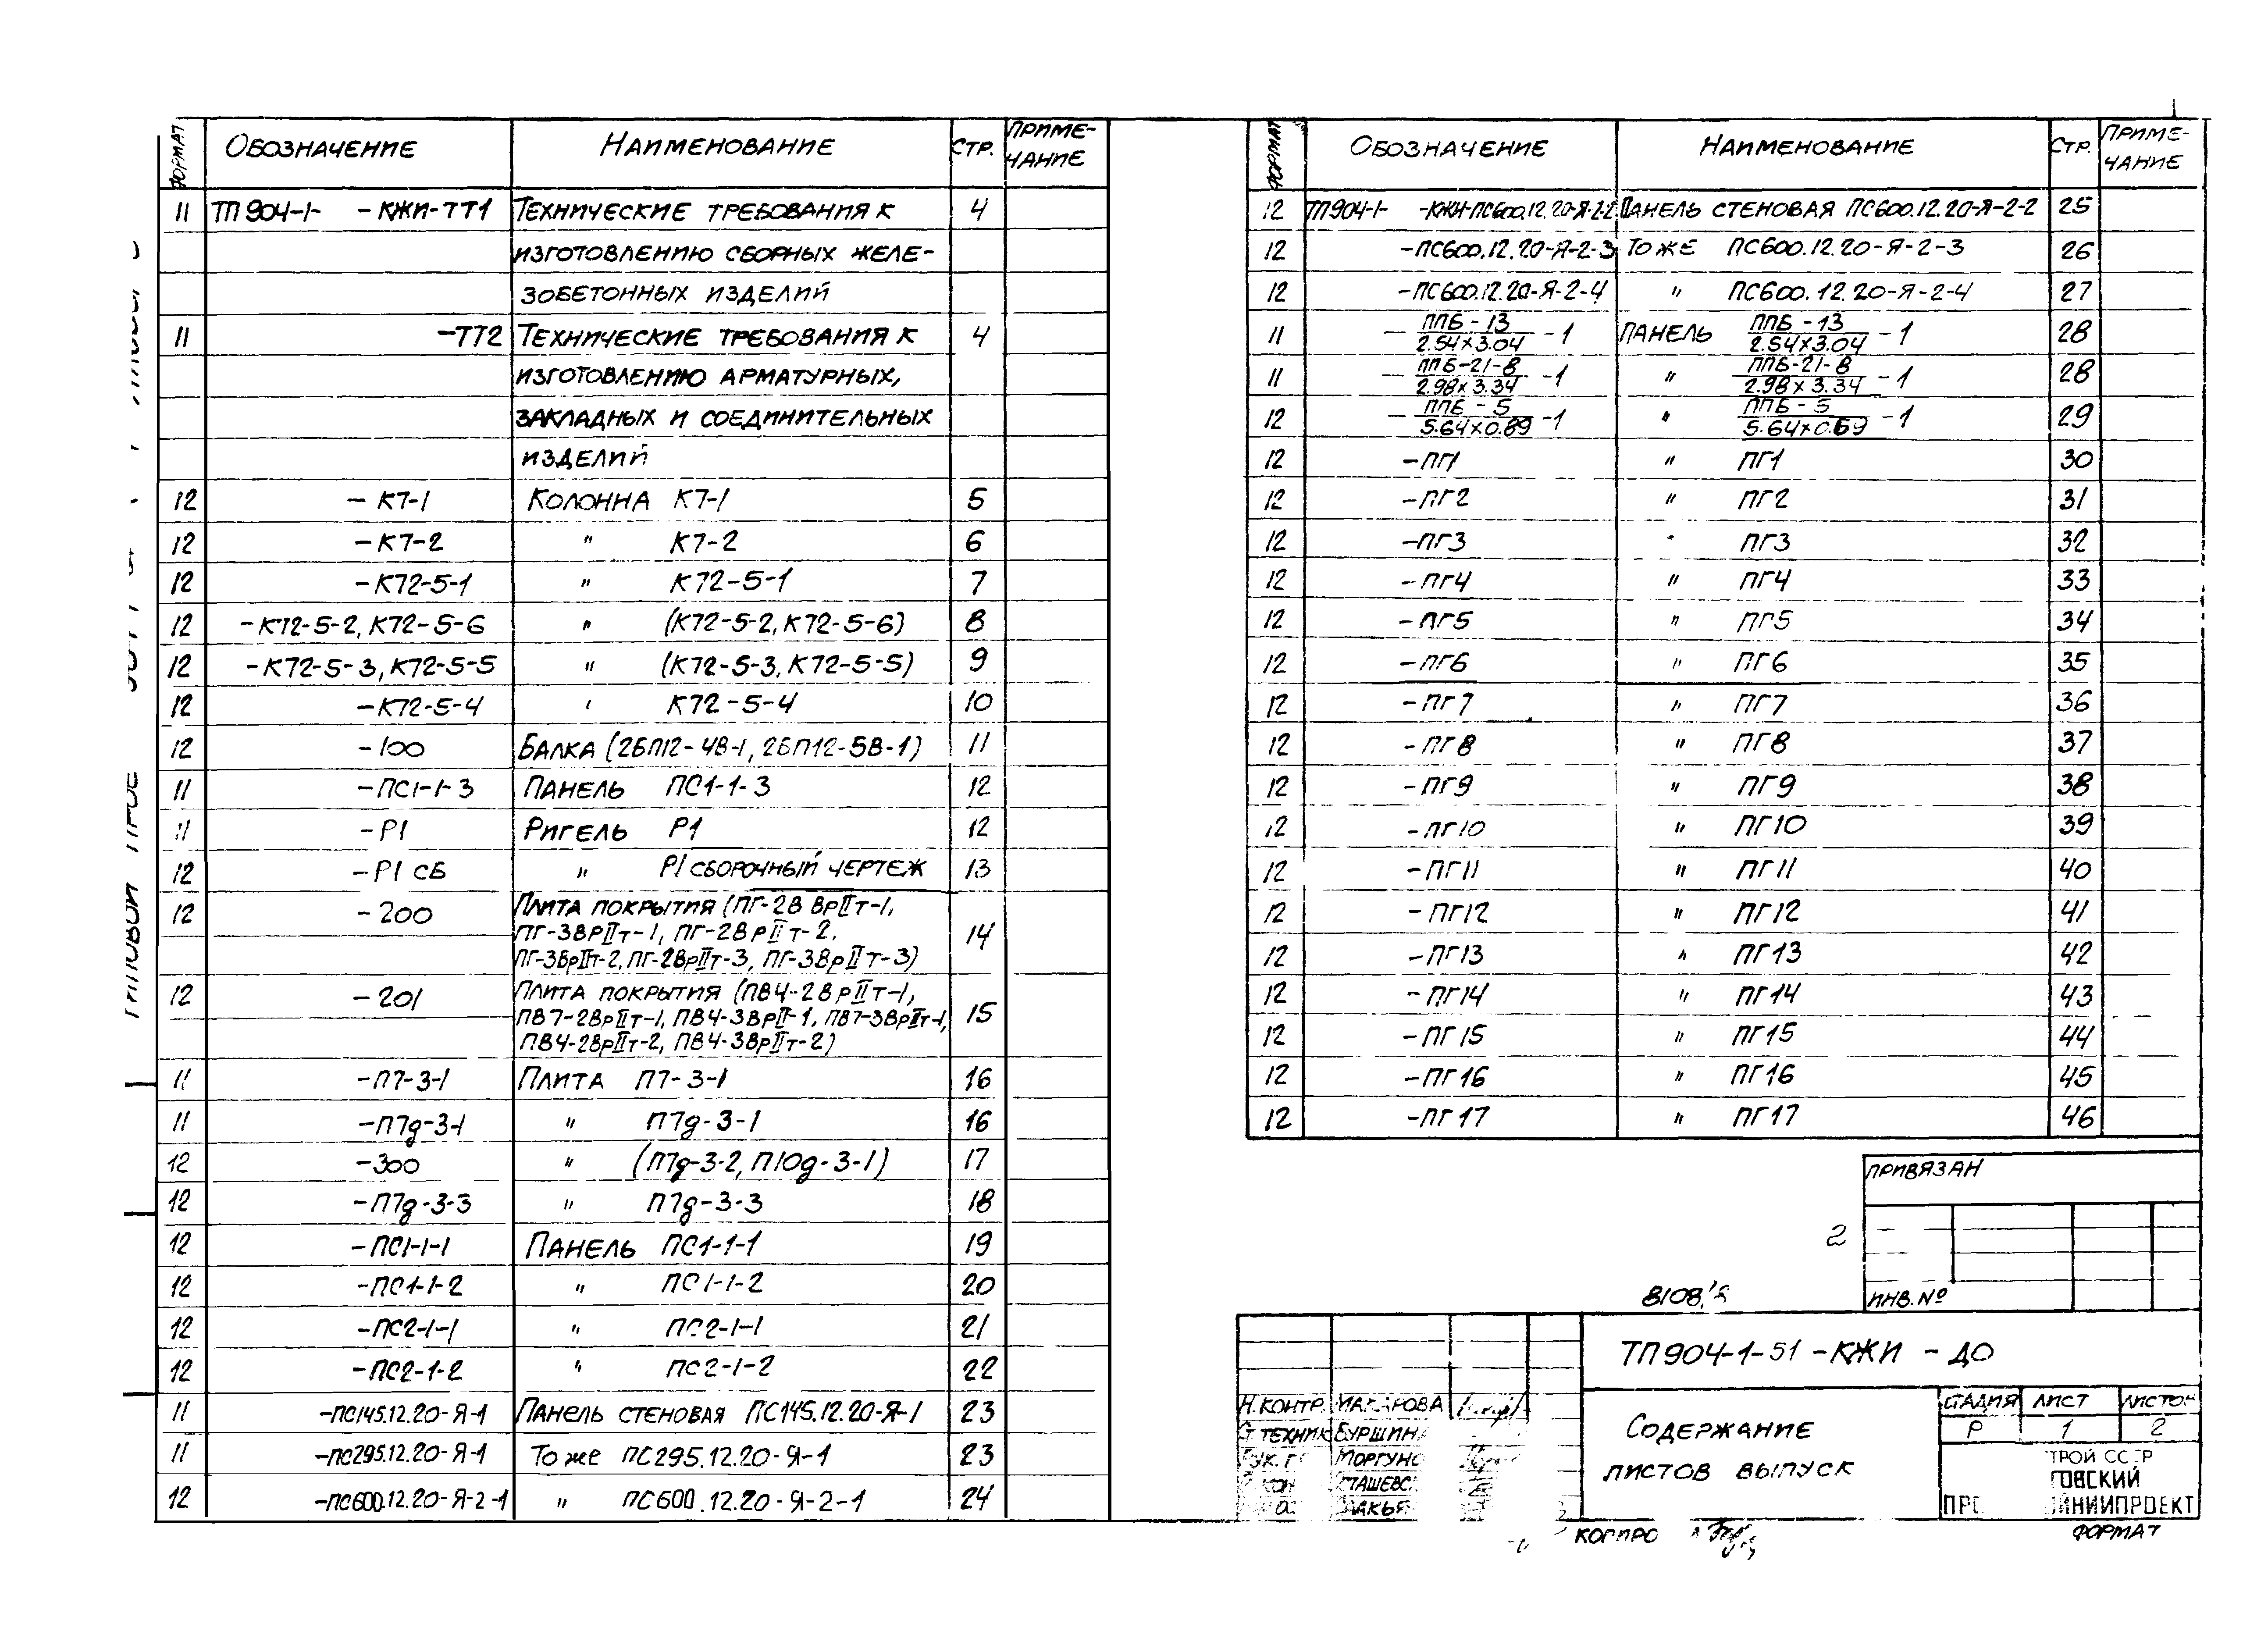 ФОРМАТ ОБОЗНАЧЕНИЕ НАИМЕНОВАНИЕ СТР. ПРИМЕ-ЧАНИЕ
11 ТП904-1- -КЖИ-ТТ1 ТЕХНИЧЕСКИЕ ТРЕБОВАНИЯ К 4
ИЗГОТОВЛЕНИЮ СБОРНЫХ ЖЕЛЕ-
ЗОБЕТОННЫХ ИЗДЕЛИЙ
11 -ТТ2 ТЕХНИЧЕСКИЕ ТРЕБОВАНИЯ К 4
ИЗГОТОВЛЕНИЮ АРМАТУРНЫХ,
ЗАКЛАДНЫХ И СОЕДИНИТЕЛЬНЫХ
ИЗДЕЛИЙ
12 - К7-1 КОЛОННА К7-1 5
12 -К7-2 " К7-2 6
12 -К72-5-1 " К72-5-1 7
12 -К72-5-2, К72-5-6 " (К72-5-2, К72-5-6) 8
12 -К72-5-3, К72-5-5 " (К72-5-3, К72-5-5) 9
12 -К72-5-4 " К72-5-4 10
12 -100 БАЛКА (2БП12-4В-1, 2БП12-5В-1) 11
11 -ПС1-1-3 ПАНЕЛЬ ПС1-1-3 12
11 -Р1 РИГЕЛЬ Р1 12
12 -Р1 СБ " Р1 СБОРОЧНЫЙ ЧЕРТЕЖ 13
12 -200 ПЛИТА ПОКРЫТИЯ (ПГ-2В ВрIIт-1,
ПГ-3ВрIIт-1, ПГ-2ВрIIт-2, 14
ПГ-3ВрIIт-2, ПГ-2ВрIIт-3, ПГ-3ВрIIт-3)
12 -201 ПЛИТА ПОКРЫТИЯ (ПВ4-2ВрIIт-1,
ПВ7-2ВрIIт-1, ПВ4-3ВрII-1, ПВ7-3ВрIIт-1, 15
ПВ4-2ВрIIт-2, ПВ4-3ВрIIт-2)
11 -П7-3-1 ПЛИТА П7-3-1 16
11 -П7д-3-1 " П7д-3-1 16
12 -300 " (П7д-3-2, П10д-3-1) 17
12 -П7д-3-3 " П7д-3-3 18
12 -ПС1-1-1 ПАНЕЛЬ ПС1-1-1 19
12 -ПС1-1-2 " ПС1-1-2 20
12 -ПС2-1-1 " ПС2-1-1 21
12 -ПС2-1-2 " ПС2-1-2 22
11 -ПС145.12.20-Я-1 ПАНЕЛЬ СТЕНОВАЯ ПС145.12.20-Я-1 23
11 -ПС295.12.20-Я-1 ТО ЖЕ ПС295.12.20-Я-1 23
12 -ПС600.12.20-Я-2-1 " ПС600.12.20-Я-2-1 24
ФОРМАТ ОБОЗНАЧЕНИЕ НАИМЕНОВАНИЕ СТР. ПРИМЕ-ЧАНИЕ
12 ТП904-1- -КЖИ-ПС600.12.20-Я-2-2 ПАНЕЛЬ СТЕНОВАЯ ПС600.12.20-Я-2-2 25
12 -ПС600.12.20-Я-2-3 ТО ЖЕ ПС600.12.20-Я-2-3 26
12 -ПС600.12.20-Я-2-4 " ПС600.12.20-Я-2-4 27
11 - ППБ-13/2.54х3.04 -1 ПАНЕЛЬ ППБ-13/2.54х3.04 -1 28
11 - ППБ-21-8/2.98х3.34 -1 " ППБ-21-8/2.98х3.34 -1 28
12 - ППБ-5 -1 " ППБ-5 -1 29
12 -ПГ1 " ПГ1 30
12 -ПГ2 " ПГ2 31
12 -ПГ3 " ПГ3 32
12 -ПГ4 " ПГ4 33
12 -ПГ5 " ПГ5 34
12 -ПГ6 " ПГ6 35
12 -ПГ7 " ПГ7 36
12 -ПГ8 " ПГ8 37
12 -ПГ9 " ПГ9 38
12 -ПГ10 " ПГ10 39
12 -ПГ11 " ПГ11 40
12 -ПГ12 " ПГ12 41
12 -ПГ13 " ПГ13 42
12 -ПГ14 " ПГ14 43
12 -ПГ15 " ПГ15 44
12 -ПГ16 " ПГ16 45
12 -ПГ17 " ПГ17 46
ПРИВЯЗАН
2
ИНВ.№
ТП904-1-51-КЖИ-ДО
Н.КОНТР. МАКАРОВА
СТ.ТЕХНИК
СОДЕРЖАНИЕ
ЛИСТОВ ВЫПУСК
СТАДИЯ ЛИСТ ЛИСТОВ
Р 1 2
ФОРМАТ